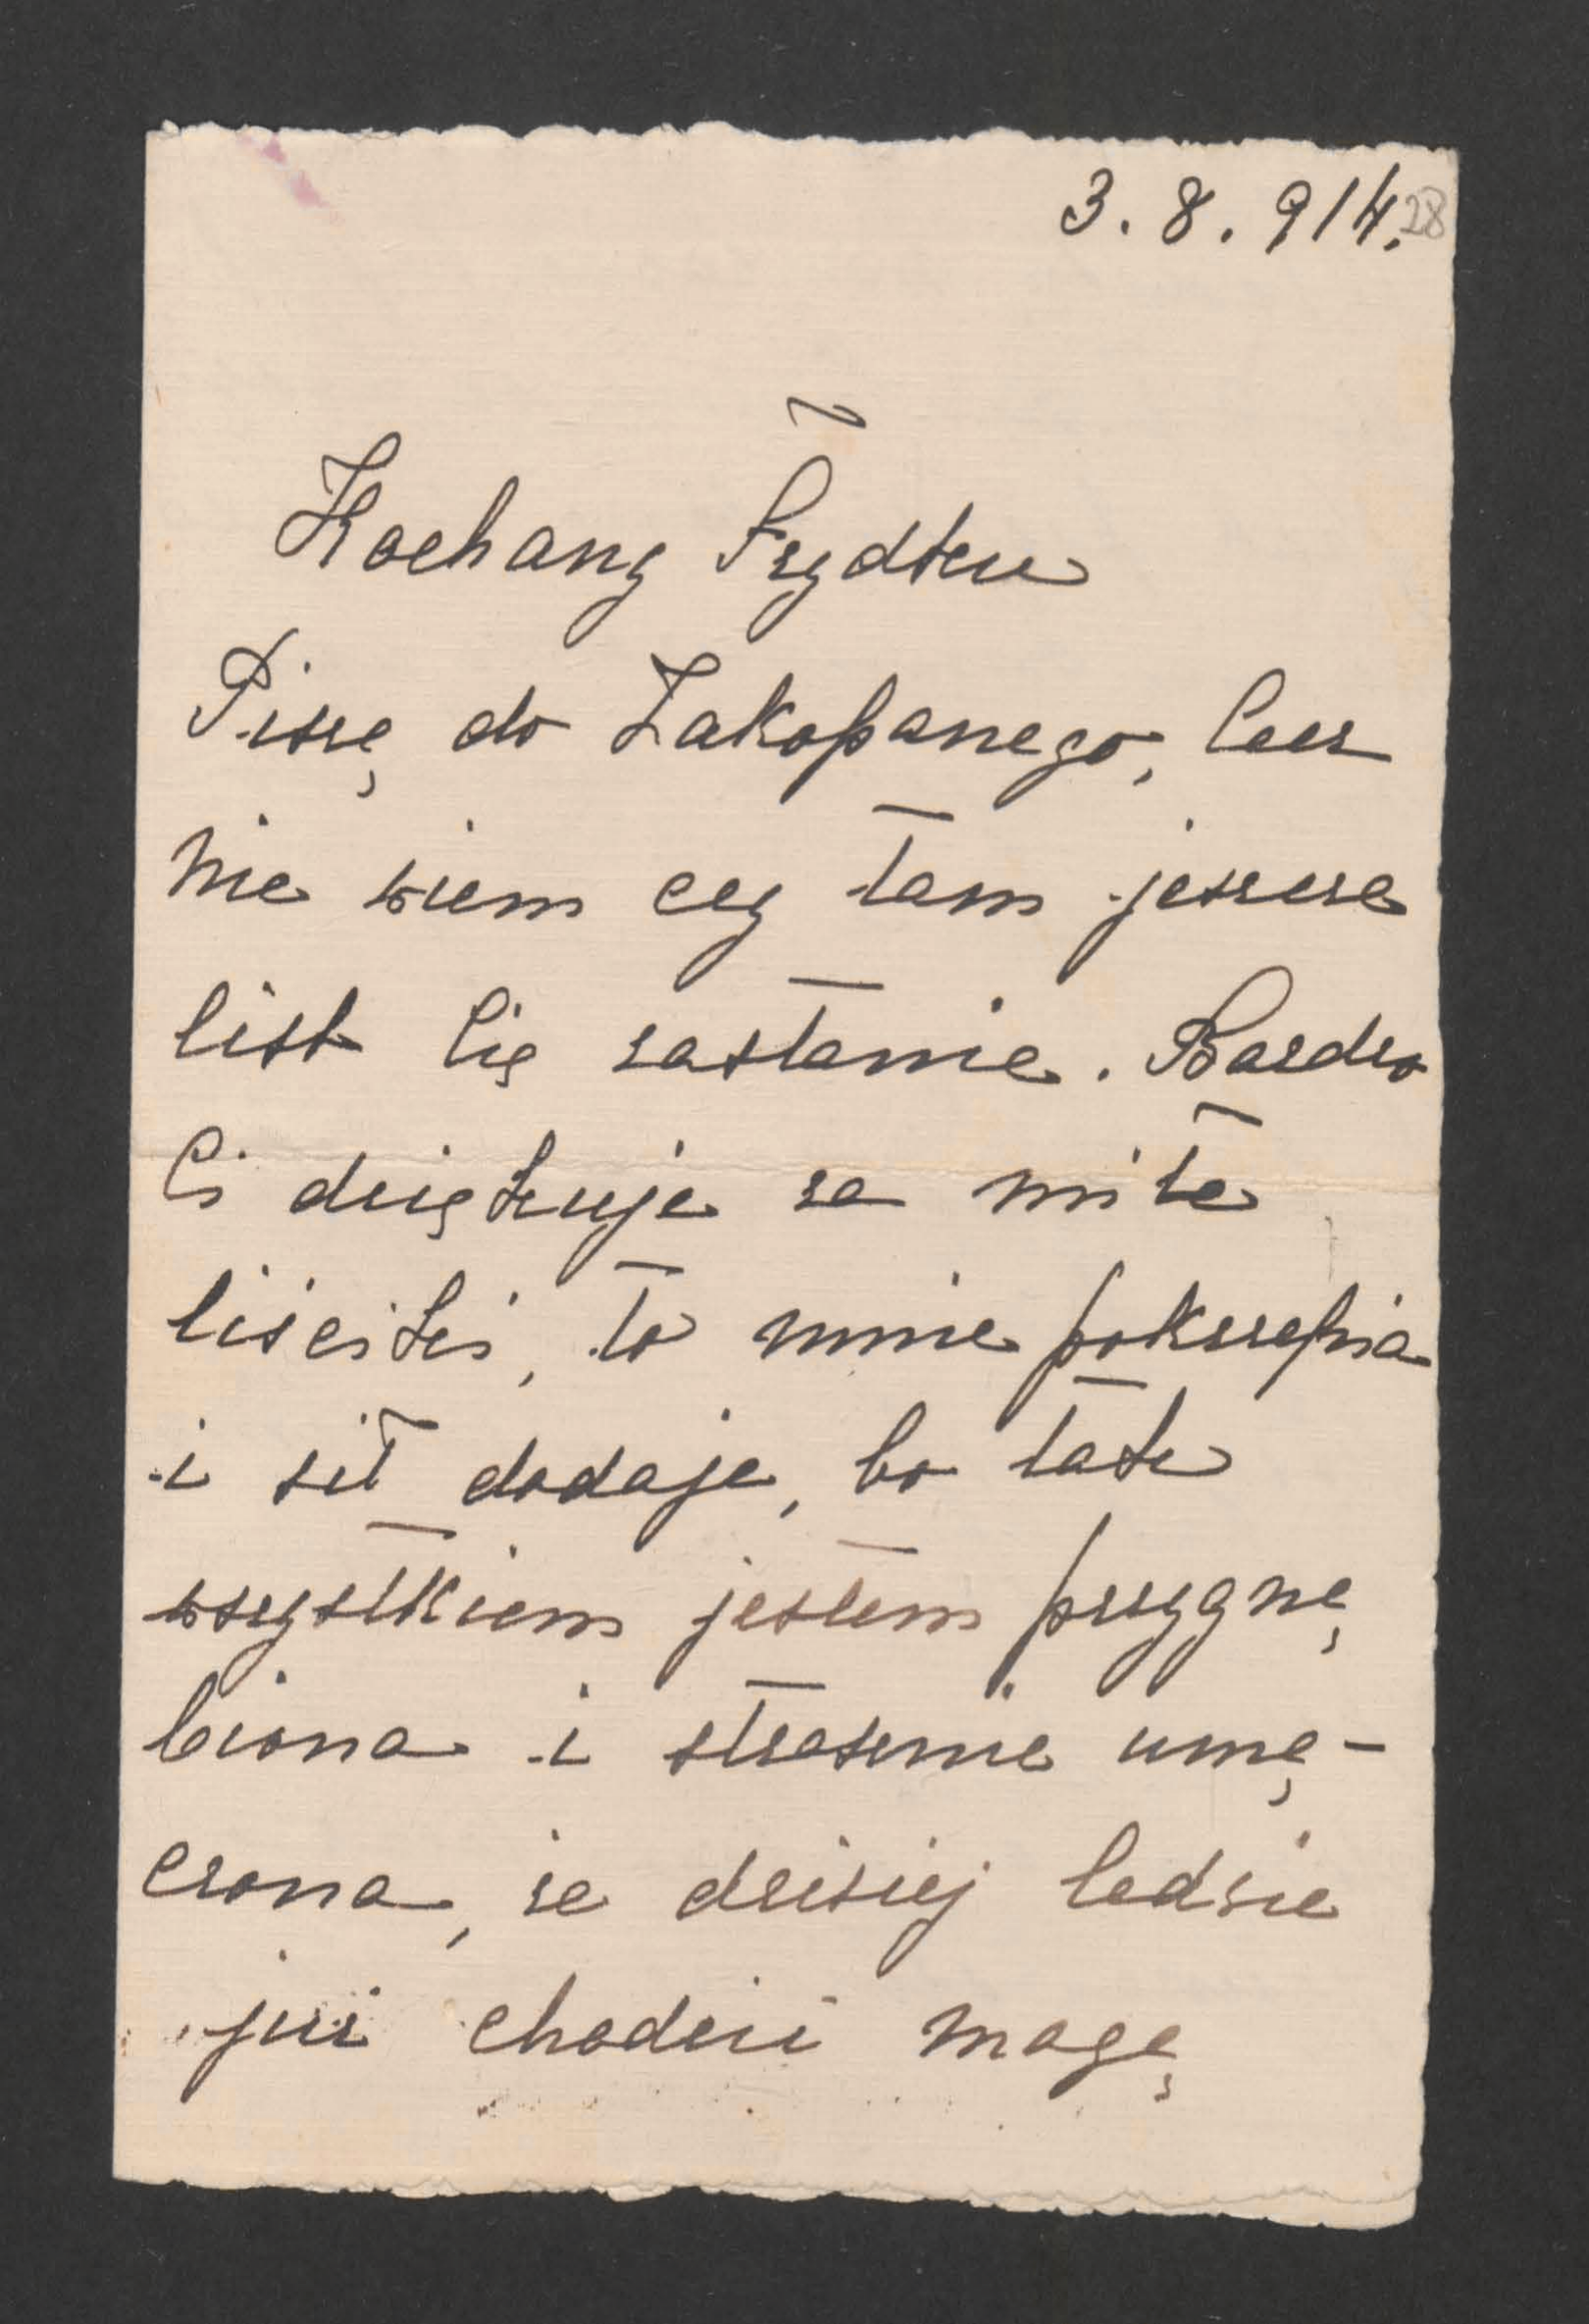 3. 8. 914. 28
Kochany Frydku
Piszę do Zakopanego, lecz
nie wiem czy tam jeszcze
list Cię zastanie. Bardzo
Ci dziękuje za miłe
liściki, to mnie pokrzepia
i sił dodaje, bo tak
wszystkiem jestem przygnę
biona i strasznie umę-
czona, że dzisiej ledwie
już chodzić mogę